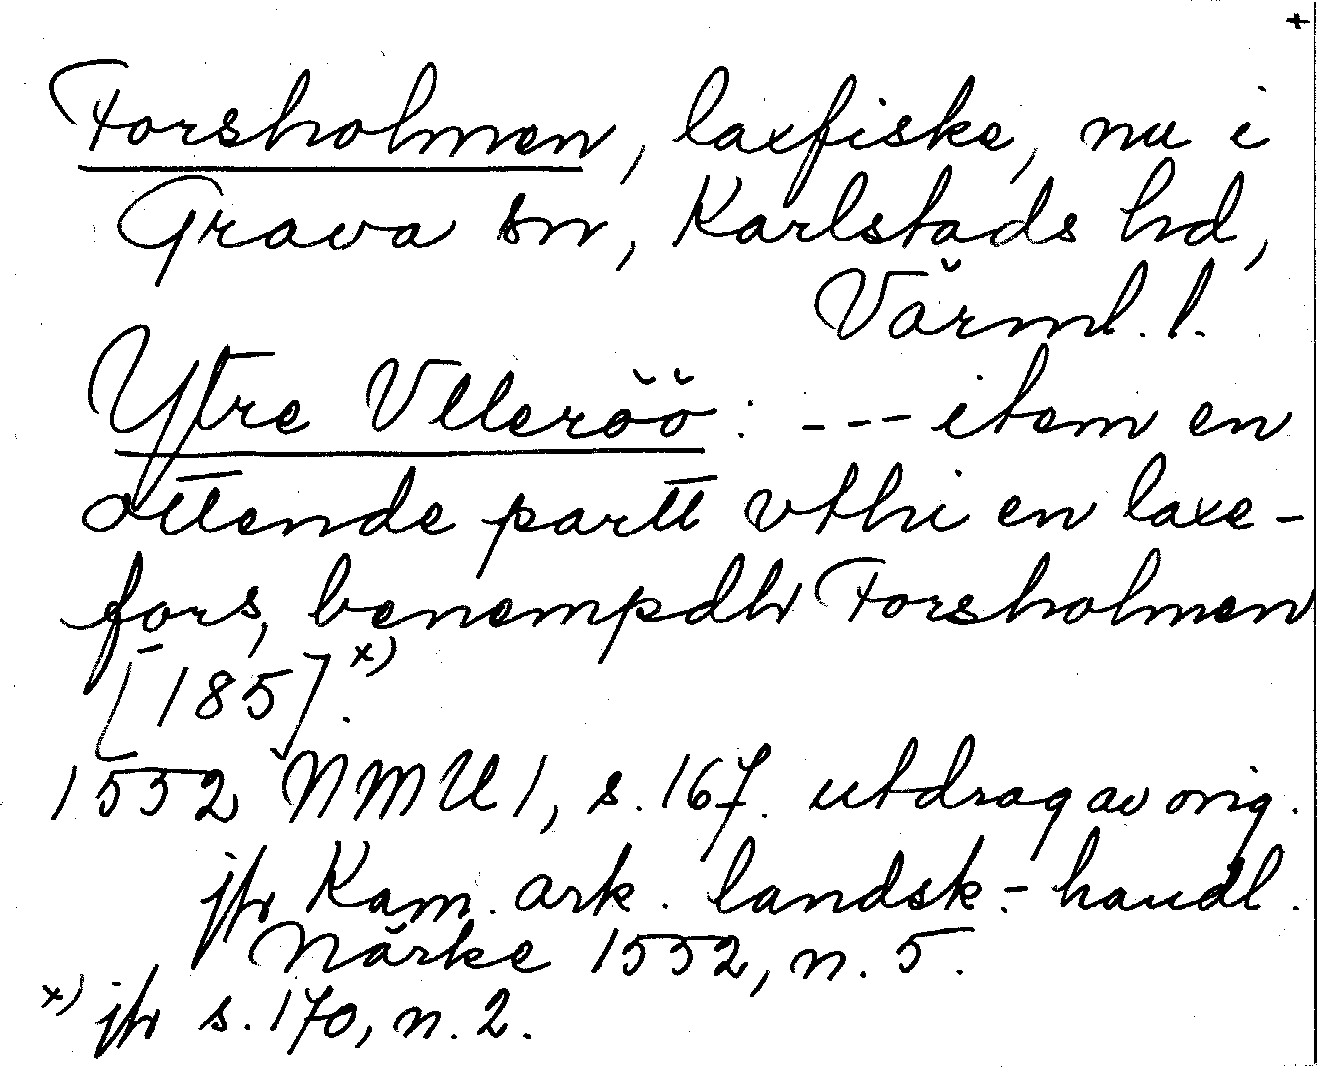 +
Forsholmen, laxfiske, nu i
Grava sn, Karlstads hd,
Värml. l.
Ytre Vlleröö: --- item en
ottende partt vthi en laxe-
fors, benempdh Forsholmen
[185].x)
1552 NMU 1, s. 167. utdrag av orig.
jfr Kam. ark. landsk.-handl.
Närke 1552, n. 5.
x) jfr s. 170, n. 2.